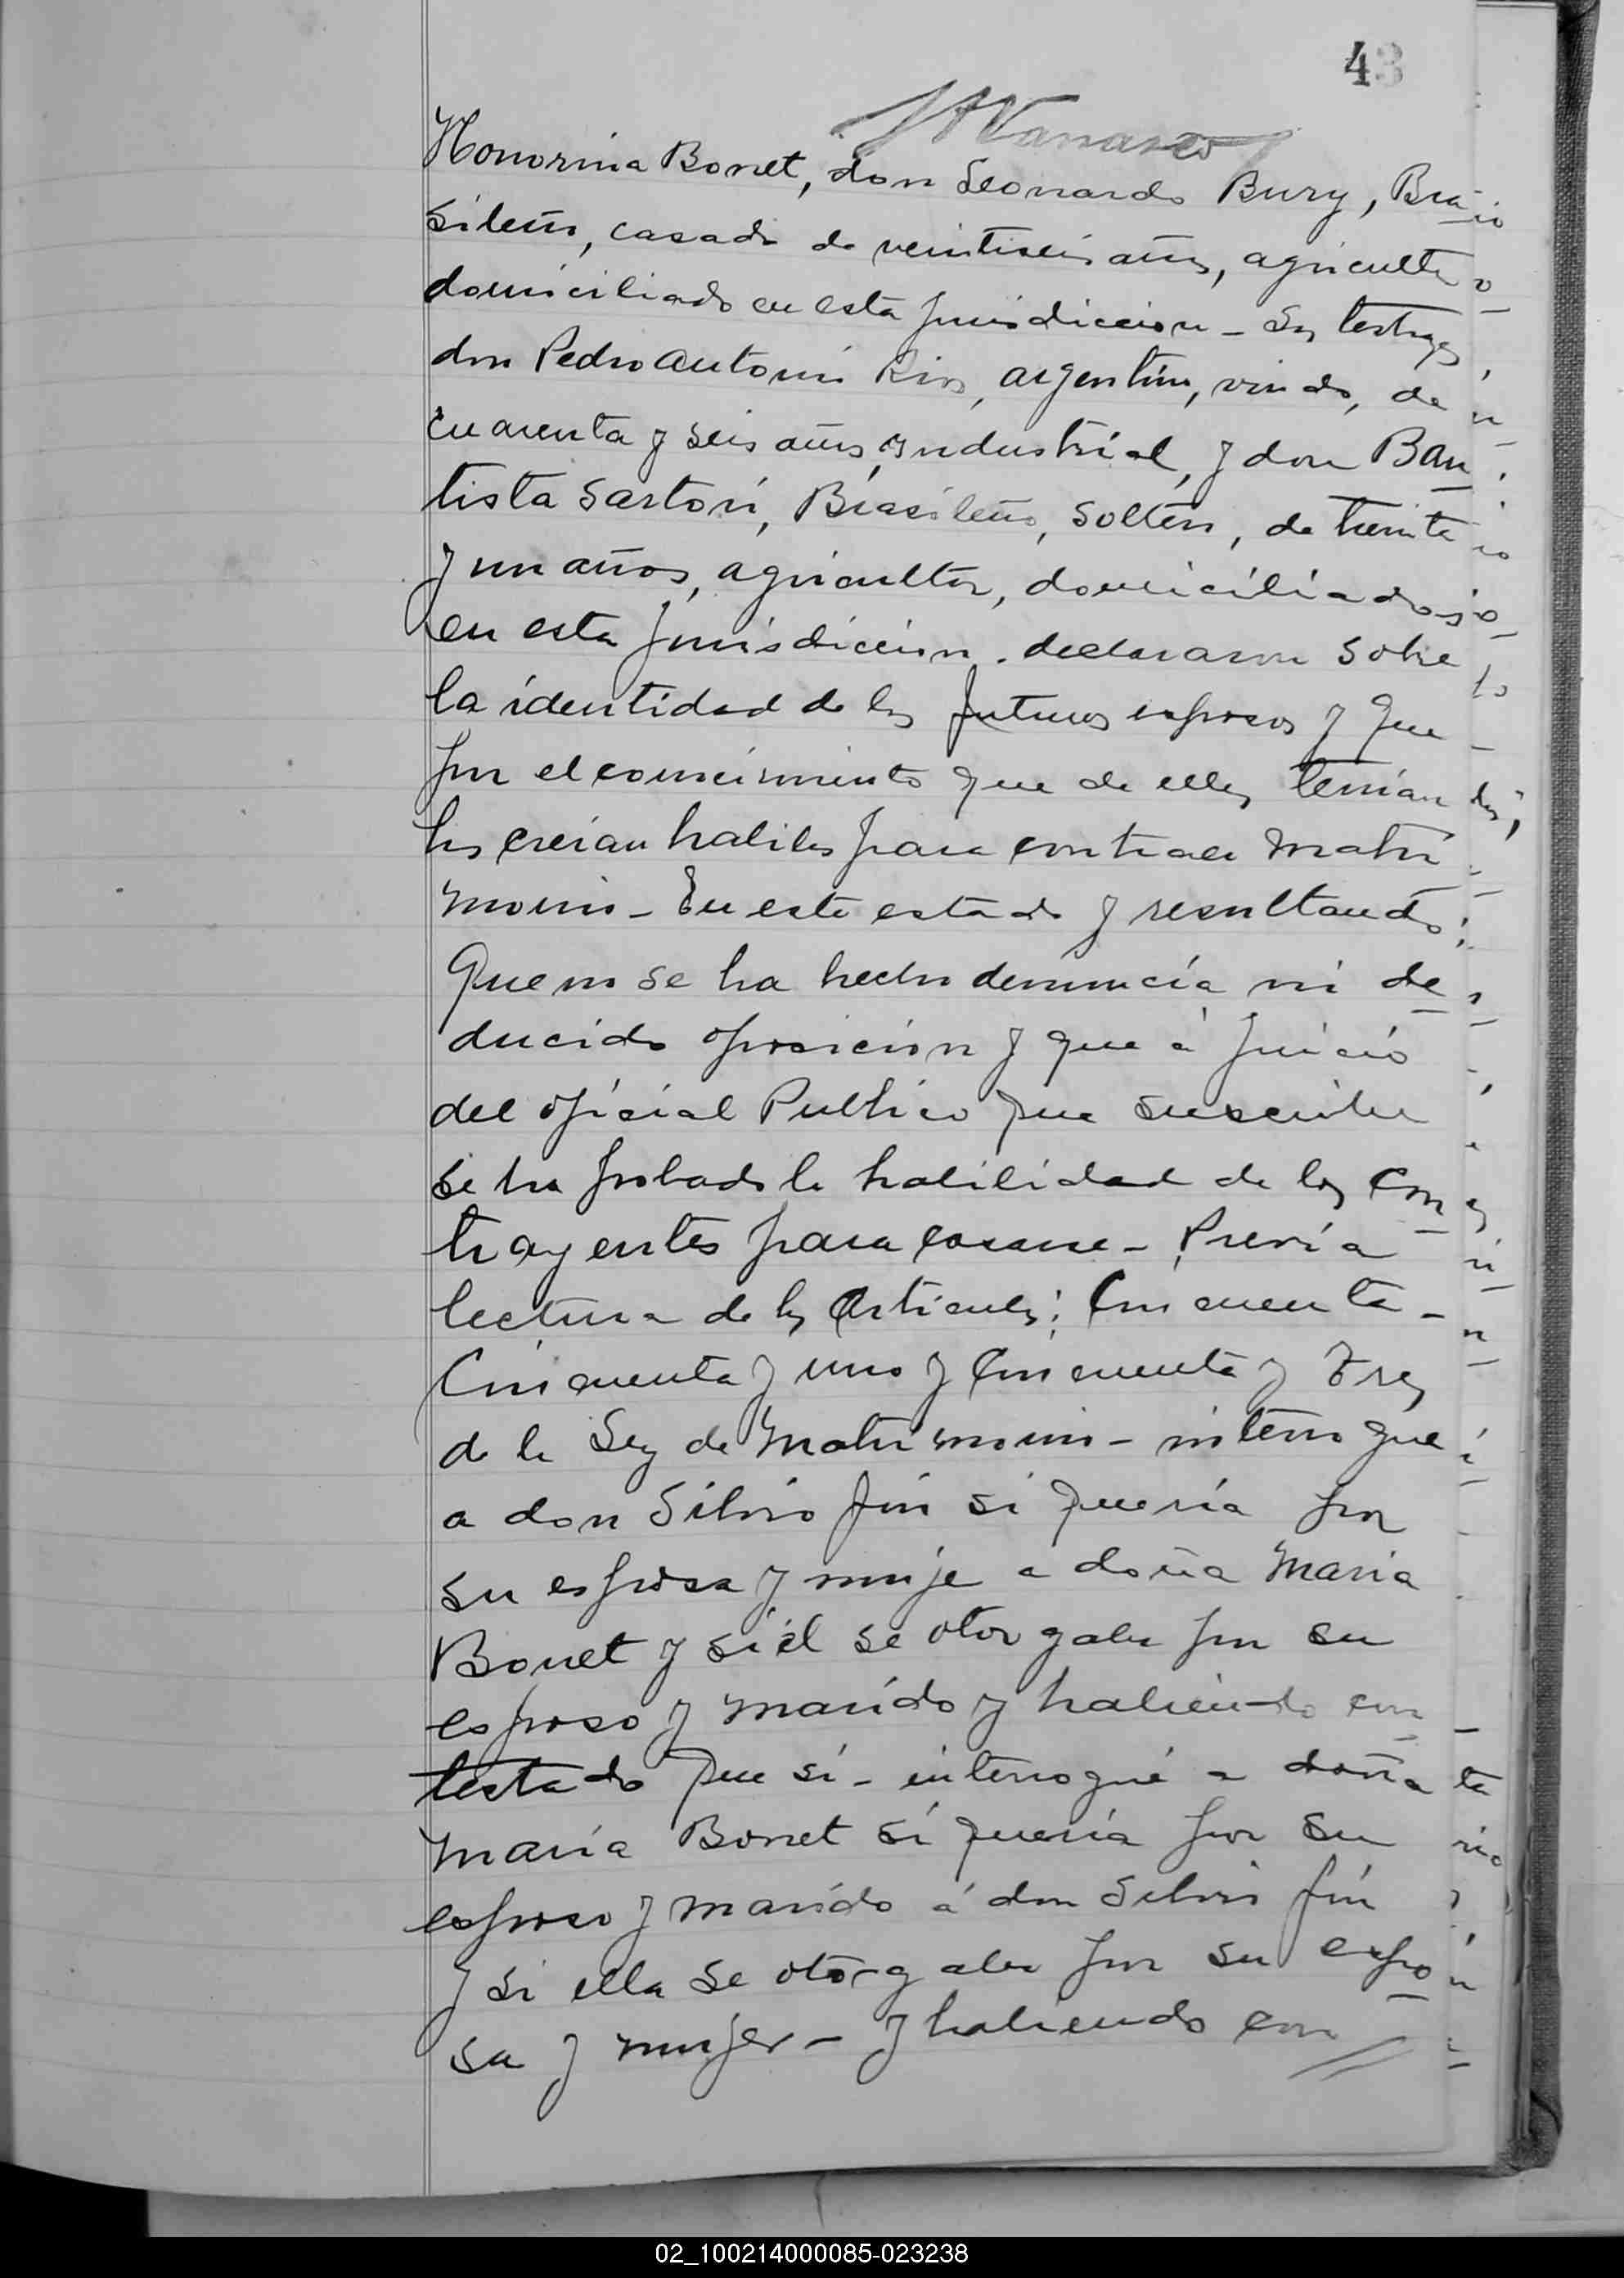 43
Honorina Bonet, don Leonardo Bury, Bra
sileño, casado de veintiseis años, agricultor
domiciliado en esta jurisdiccion - Los testigos
don Pedro Antonio Rios, argentino, viudo, de
cuarenta y seis años, industrial, y don Bau
tista Sartori, Brasileño, soltero, de treinta
y un años, agricultor, domiciliados
en esta jurisdiccion. declararon sobre
la identidad de los futuros esposos y que
por el conocimiento que de ellos tenian
los creian habiles para contraer matri
monio - En este estado y resultando:
Que no se ha hecho denuncia ni de
ducido oposicion y que á juicio
del oficial Publico que suscribe
se ha probado la habilidad de los con
trayentes para casarse - Previa
lectura de los Articulos: Cincuenta -
Cincuenta y uno y Cincuenta y Tres
de la Ley de Matrimonio - interrogue
a don Silvio Fin si queria por
su esposa y mujer a doña Maria
Bonet y si él se otorgaba por su
esposo y marido y habiendo con
testado que si - interrogué a doña
Maria Bonet si queria por su
esposo y marido á don Silvio Fin
y si ella se otorgaba por su espo
sa y mujer - y habiendo con
02_100214000085-023238